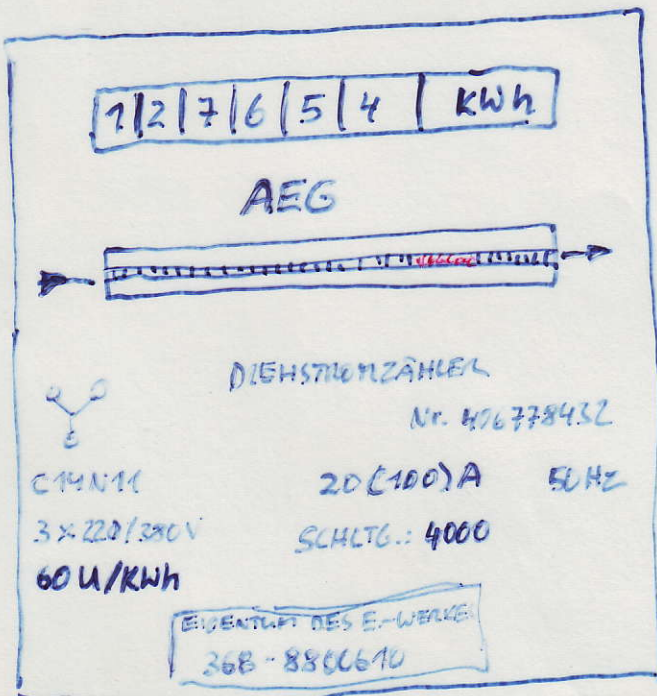 1|2|7|6|5|4| KWh
AEG
DREHSTROMZÄHLER
Nr. 406778432
C14N11 20(100)A 50Hz
3x220/380V SCHLTG.: 4000
60 U/KWh
EIGENTUM DES E.-WERKES
368-8800610